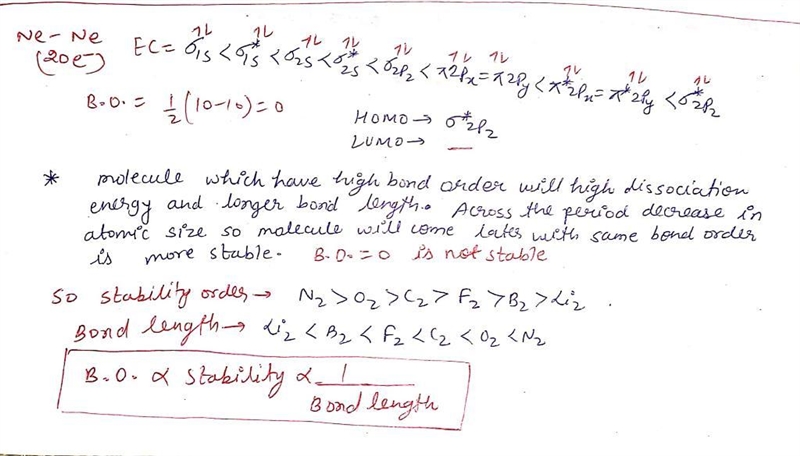 Ne-Ne (20e-) EC = σ1s < σ*1s < σ2s < σ*2s < σ2Pz < π2Px = π2Py < π*2Px = π*2Py < σ*2Pz
B.O. = 1/2 (10-10) = 0
HOMO → σ*2Pz
LUMO → —
* molecule which have high bond order will high dissociation
energy and longer bond length. Across the period decrease in
atomic size so molecule will come later with same bond order
is more stable. B.O. = 0 is not stable
So stability order → N2 > O2 > C2 > F2 > B2 > Li2 .
Bond length → Li2 < B2 < F2 < C2 < O2 < N2
B.O. ∝ Stability ∝ 1/Bond length